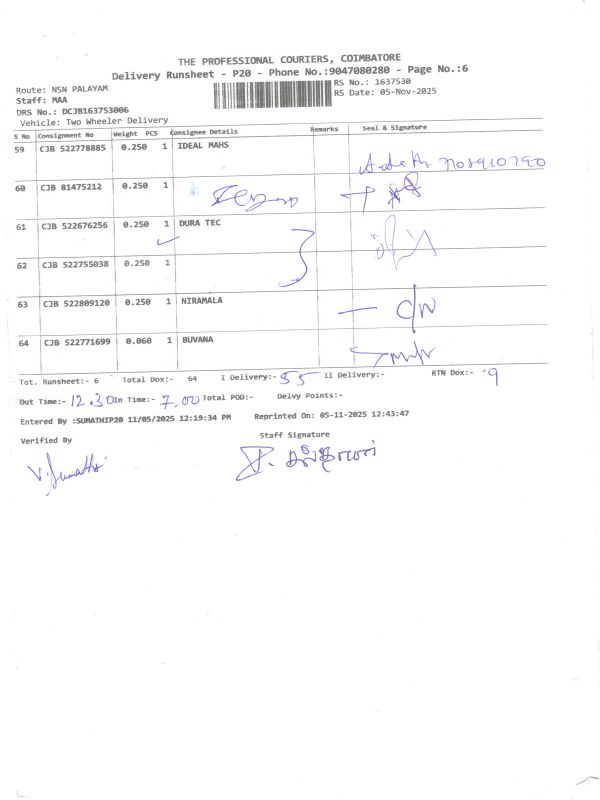 THE PROFESSIONAL COURIERS, COIMBATORE
Delivery Runsheet - P20 - Phone No.:9047080280 - Page No.:6
Route: NSN PALAYAM RS No.: 1637530
Staff: MAA RS Date: 05-Nov-2025
DRS No.: DCJB163753006
Vehicle: Two Wheeler Delivery
S No Consignment No Weight PCS Consignee Details Remarks Seal & Signature
59 CJB 522778885 0.250 1 IDEAL MAHS
60 CJB 81475212 0.250 1
61 CJB 522676256 0.250 1 DURA TEC
62 CJB 522755038 0.250 1
63 CJB 522809120 0.250 1 NIRAMALA
64 CJB 522771699 0.060 1 BUVANA
Tot. Runsheet:- 6 Total Dox:- 64 I Delivery:- 55 II Delivery:- RTN Dox:- 9
Out Time:- 12.30 In Time:- 7.00 Total POD:- Delvy Points:-
Entered By :SUMATHIP20 11/05/2025 12:19:34 PM Reprinted On: 05-11-2025 12:43:47
Verified By Staff Signature
V. Sumathi